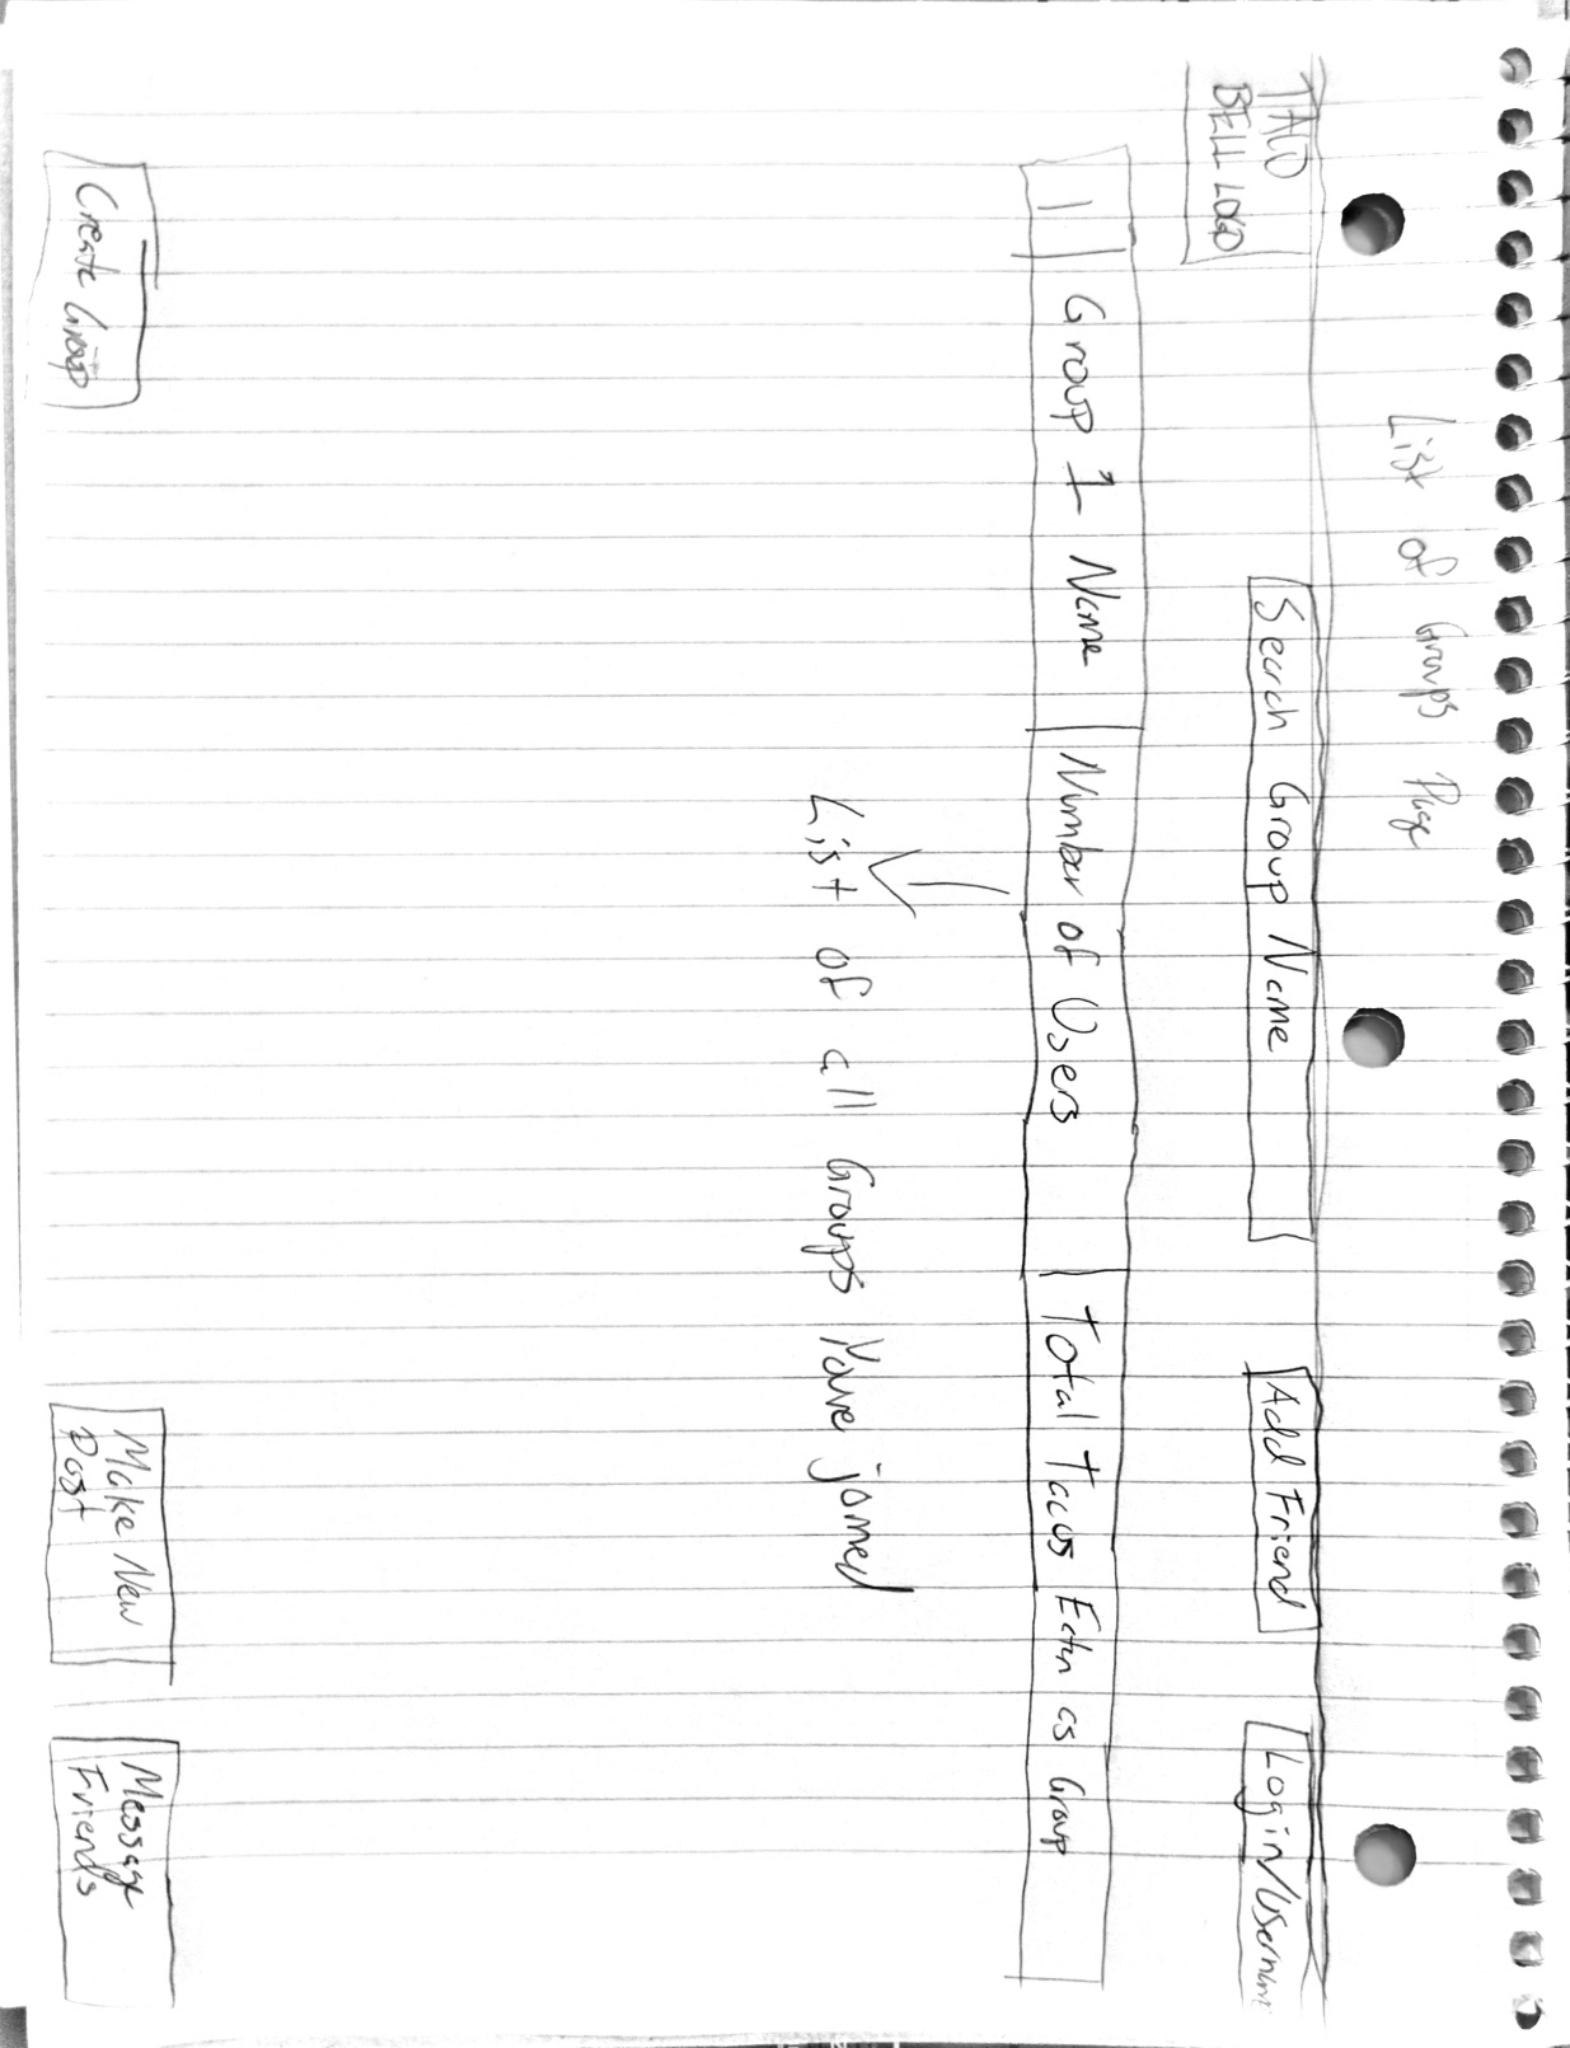 List of Groups Page
TACO
BELL LOGO
Search Group Name
Add Friend
Login/Usernam
1
Group 1 Name
Number of Users
Total Tacos Eatn as Group
List of all Groups Nave joined
Create Group
Make New
Post
Message
Friends